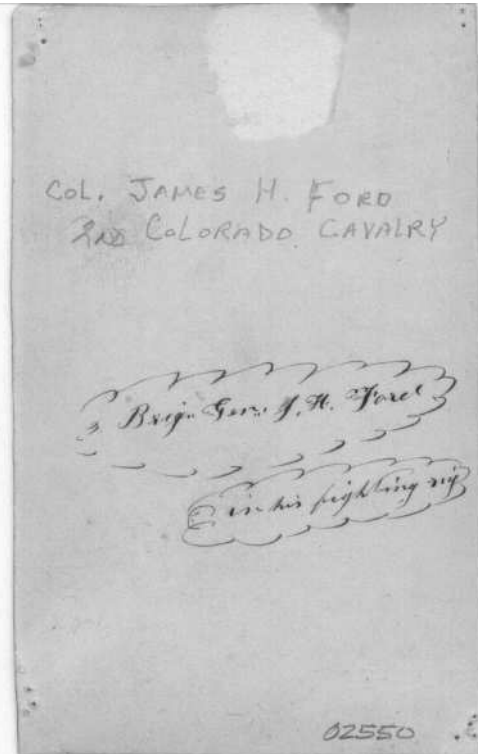 COL. JAMES H. FORD
2ND COLORADO CAVALRY
Brig. Gen. J. H. Ford
in his fighting rig
02550